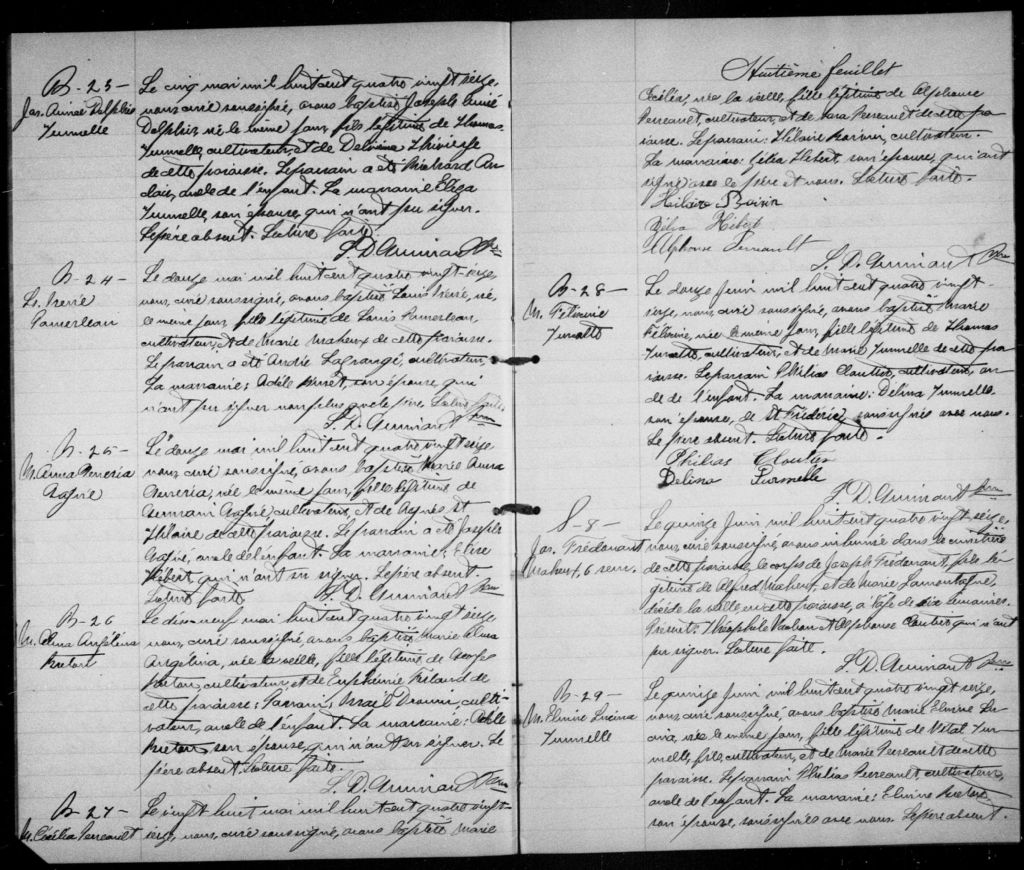 B - 23 -
Jos. Aimé Delphis
Turmelle
Le cinq mai mil huit cent quatre vingt seize,
nous, curé soussigné, avons baptisé Joseph Aimé
Delphis né le même jour, fils légitime de Thomas
Turmelle, cultivateur, et de Delvina Thivierge
de cette paroisse. Le parrain a été Richard
oncle de l'enfant. La marraine Eliza
Turmelle, son épouse, qui n'ont pu signer.
Le père absent. Lecture faite.
B - 24 -
Ls. Irené
Pomerleau
Le douze mai mil huit cent quatre vingt-seize,
nous, curé soussigné, avons baptisé Louis Irené, né,
ce même jour, fils légitime de Louis Pomerleau,
cultivateur, et de Marie Maheux de cette paroisse.
Le parrain a été André Lagrange, cultivateur,
La marraine: Adèle son épouse qui
n'ont pu signer non plus que le père. Lecture faite.
B - 25 -
M. Anna
Le douze mai mil huit cent quatre vingt seize
nous, curé soussigné, avons baptisé Marie Anna
née le même jour, fille légitime de
cultivateur, et de Agnès St
Hilaire de cette paroisse. Le parrain a été Joseph
oncle de l'enfant. La marraine: Elise
Hébert, qui n'ont su signer. Le père absent.
Lecture faite
B - 26
M. Alma Angélina
Breton
Le dix-neuf mai mil huit cent quatre vingt seize
nous, curé soussigné, avons baptisé Marie Alma
Angélina, née la veille, fille légitime de Georges
Breton, cultivateur, et de Euphémie de
cette paroisse: Parrain: Drouin, culti-
vateur, oncle de l'enfant. La marraine: Adèle
Breton son épouse, qui n'ont su signer. Le
père absent. Lecture faite.
B - 27 -
M. Cécilia Perreault
Le vingt huit mai mil huit cent quatre vingt-
seize, nous, curé soussigné, avons baptisé Marie
Huitième feuillet
Cécilia, née la veille, fille légitime de Alphonse
Perreault, cultivateur, et de Perreault de cette pa-
roisse. Le parrain: Hilaire cultivateur.
La marraine: Célia Hébert, son épouse, qui ont
signé avec le père et nous. Lecture faite.
Hilaire
Célia Hébert
Alphonse Perreault
B - 28 -
M. Felimine
Turcotte
Le douze Juin mil huit cent quatre vingt-
seize, nous, curé soussigné, avons baptisé Marie
née le même jour, fille légitime de Thomas
Turcotte, cultivateur, et de Marie Turmelle de cette pa-
roisse. Le parrain Philias Cloutier, cultivateur, on-
cle de l'enfant. La marraine: Délina Turmelle,
son épouse, de St Fréderic, soussignés avec nous.
Le père absent. Lecture faite.
Philias Cloutier
Delina Turmelle
S - 8 -
Jos. Frédenant
Maheux, 6 sem.
Le quinze Juin mil huit cent quatre vingt-seize,
nous, curé soussigné, avons inhumé dans le cimetière
de cette paroisse, le corps de Joseph Frédenant, fils lé-
gitime de Alfred Maheux, et de Marie Lamontagne,
décédé la veille, en cette paroisse, à l'âge de six semaines.
Présents: Théophile et Alphonse Cloutier, qui n'ont
pu signer. Lecture faite.
B - 29 -
M. Elmire Lucina
Turmelle
Le quinze Juin mil huit cent quatre vingt seize,
nous, curé soussigné, avons baptisé Marie Elmire Lu-
cina, née le même jour, fille légitime de Vital Tur-
melle, fils, cultivateur, et de Marie Perreault de cette
paroisse. Le parrain Philias Perreault, cultivateur,
oncle de l'enfant. La marraine: Elmire Breton
son épouse, soussignés avec nous. Le père absent.